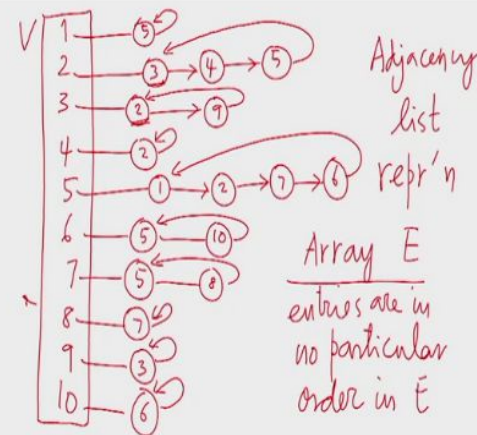 V
1 5
2 3 4 5
3 2 9
4 2
5 1 2 7 6
6 5 10
7 5 8
8 7
9 3
10 6
Adjacency
list
repr'n
Array E
entries are in
no particular
order in E